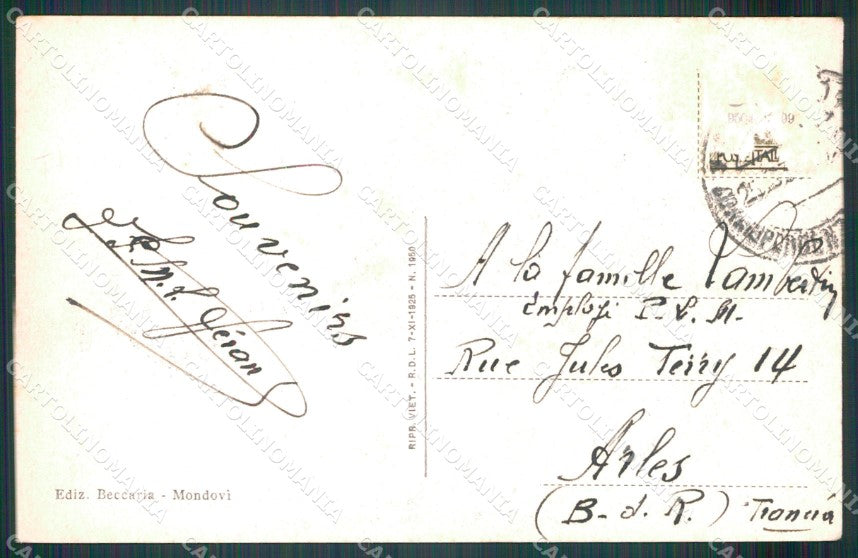 Souvenirs
A la famille Lambertin
Employé P. L. M.
Rue Jules Ferry 14
Arles
(B. d. R.) Francia
RIPR. VIET. - R.D.L. 7-XI-1925 - N. 1950
Ediz. Beccaria - Mondovì
CARTOLINOMANIA